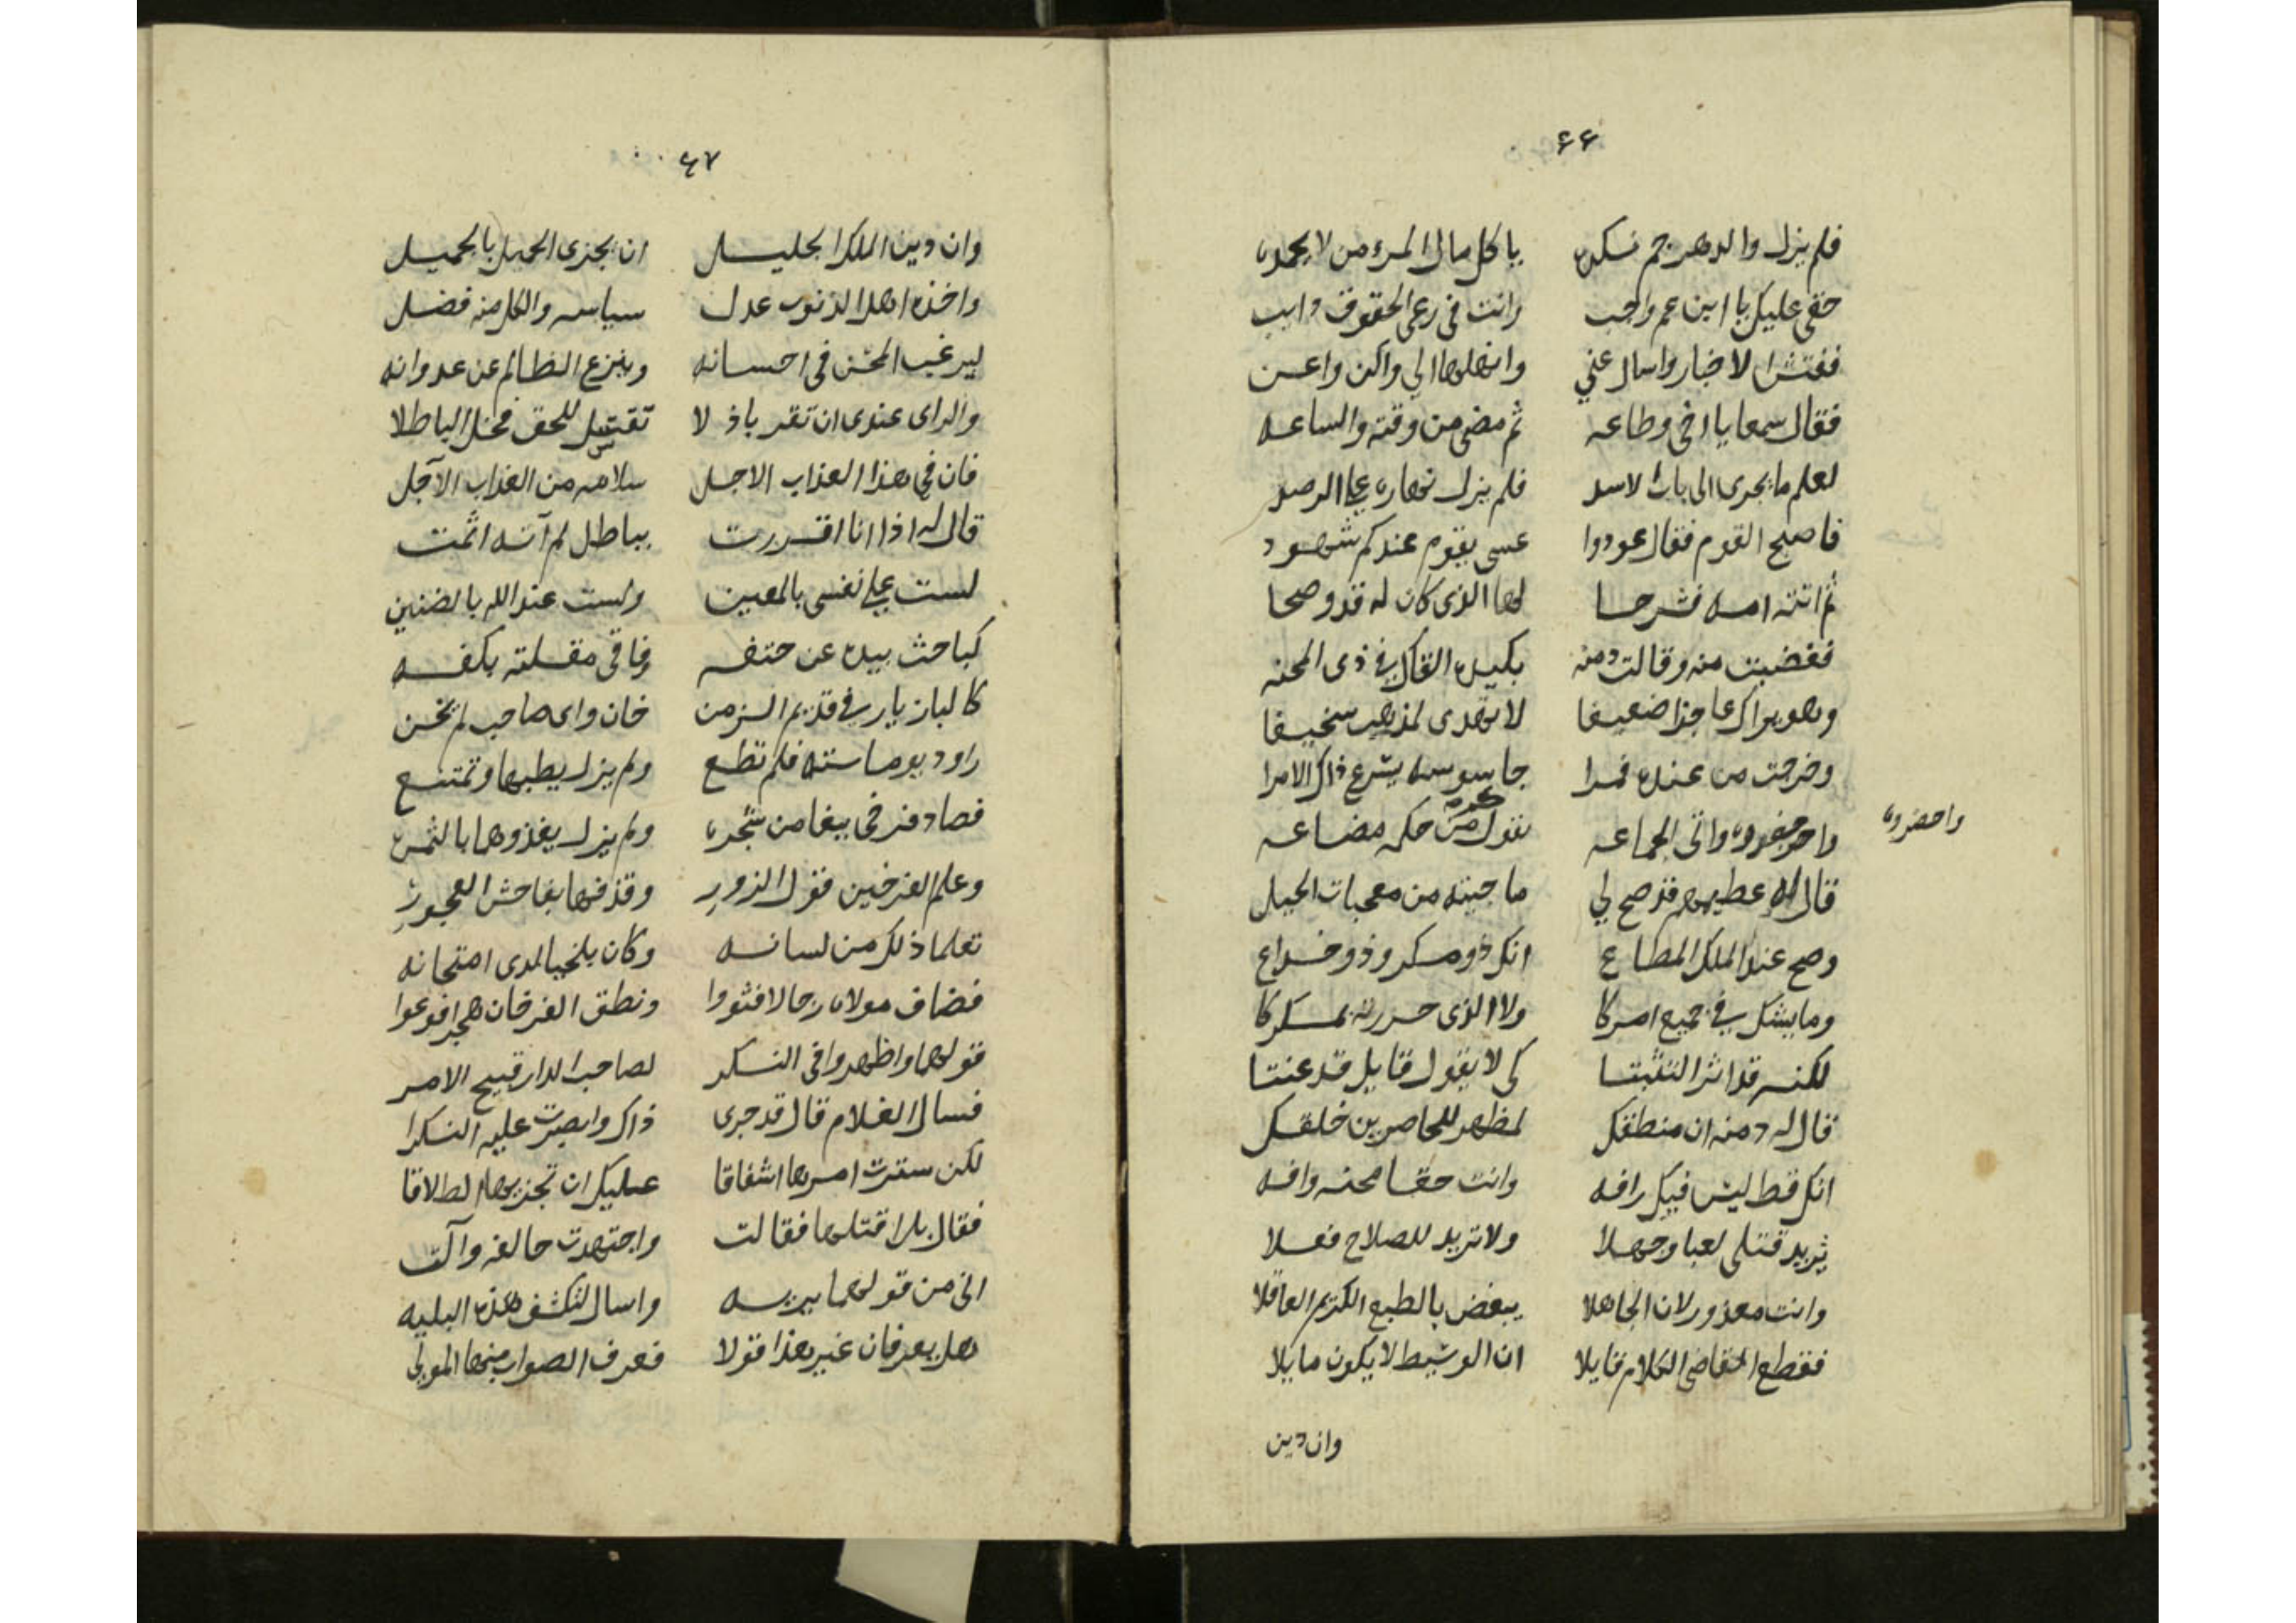 ٤٤
فلم يزل والدهر جم نكده ياكل مال المرء من لا يحمده
حقي عليك يا ابن عم واجب وانت في رعي الحقوق دايب
ففتش الاخبار واسال عني وانهلها الي واكن واعن
فقال سمعا يا اخي وطاعه ثم مضى من وقته والساعه
لعلم ما يجرى الى باب الاسد فلم يزل نهاره على الرصد
فاصبح القوم فقال عودوا عسى يقوم عندكم شهود
ثم اتته امه فشرحا لها الذى كان له قد وضحا
فغضبت منه وقالت دمنه يكيده القال في ذى المحنه
وهو يراك عاجزا ضعيفا لا تهدى لمذهب سخيفا
وخرجت من عنده فمرا جاسوسه يشرع ذاك الامرا
واحضروه
واتى الجماعه يقول حكمه مضاعه
قال له عظيمهم قد صح لي ما جيته من معجبات الحيل
وصح عند الملك المطاع انك ذو مكر وذو خداع
وما يشك في جميع امركا ولا الذى حررته بمكركا
لكنه قد اثر التثبتا كى لا يقول قايل قد عنتا
قال له دمنه ان منطقك لمظهر للحاضرين خلقك
انك قط ليس فيك رافه وانت حقا محنه وافه
تريد قتلى لعبا وجهلا ولا تريد للصلاح فعلا
وانت معذور لان الجاهلا يبغض بالطبع الكريم العاقلا
فقطع القاضى الكلام قايلا ان الوسيط لا يكون مايلا
وان دين
٤٧
وان دين الملك الجليل ان يجزى الجميل بالجميل
واخذه اهل الذنوب عدل سياسه والكل منه فضل
ليرغب المحسن في احسانه وينزع الظالم عن عدوانه
والراى عندى ان تقر باذلا تقتبل للحق مخل الباطلا
فان في هذا العذاب الاجل سلامه من العذاب الآجل
قال له اذا انا اقررت بباطل لم آته اثمت
لست على نفسى بالمعين ولست عند الله بالضنين
كباحث بيده عن حتفه وفاقي مقلته بكفه
كالبازيار في قديم الزمن خان واى صاحب لم يخن
راود يوما سته فلم تطع ولم يزل يطبها وتمتنع
فصاد فرخى ببغا من شجره ولم يزل يغذوهما بالثمره
وعلم الفرخين قول الزور وقذفها بفاحش الفجور
تعلما ذلك من لسانه وكان بلخيا لدى امتحانه
فضاف مولاه رجالا فثووا ونطق الفرخان هجرا فوعوا
قولهما واظهروا في السكر لصاحب الدار قبيح الامر
فسال الغلام قال قد جرى ذاك وابصرت عليه النكرا
لكن سترت امرها اشفاقا عليك ان تجزيها الطلاقا
فقال بل اقتلها فقالت واجتهدت حالفه وآلت
انى من قولهما بريه واسال لتكشف هذه البليه
هل يعرفان غير هذا قولا فعرف الصواب منها المولى